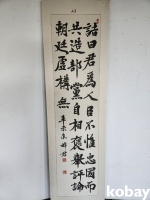 詰曰君爲人臣不惟忠國而
共造部黨自相褒舉評論
朝廷虛構無
kobay